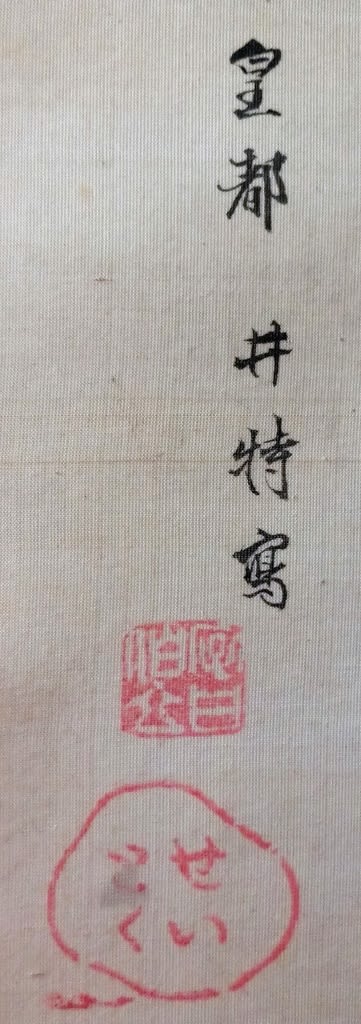 皇都 井特寫
せい
とく